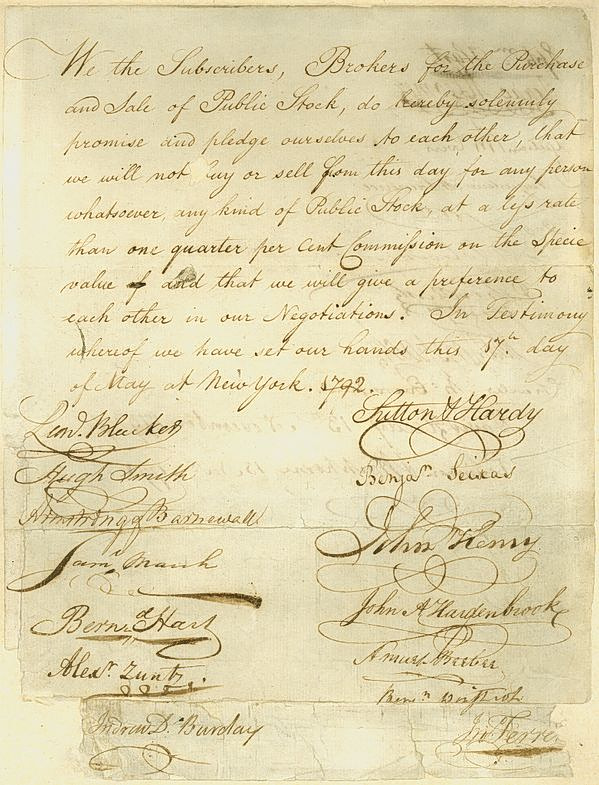 We the Subscribers, Brokers for the Purchase
and Sale of Public Stock, do hereby solemnly
promise and pledge ourselves to each other, that
we will not buy or sell from this day for any person
whatsoever, any kind of Public Stock, at a less rate
than one quarter per Cent Commission on the Specie
value of and that we will give a preference to
each other in our Negotiations. In Testimony
whereof we have set our hands this 17th day
of May at New York. 1792.
Leond. Bleecker
Hugh Smith
Armstrong & Barnewall
Saml March
Bernd Hart
Alexr Zuntz
Andrew D. Barclay
Sutton & Hardy
Benjan Seixas
John Henry
John A Hardenbrook
Amurt Beebee
Benjn Winthrop
Jno Ferrers